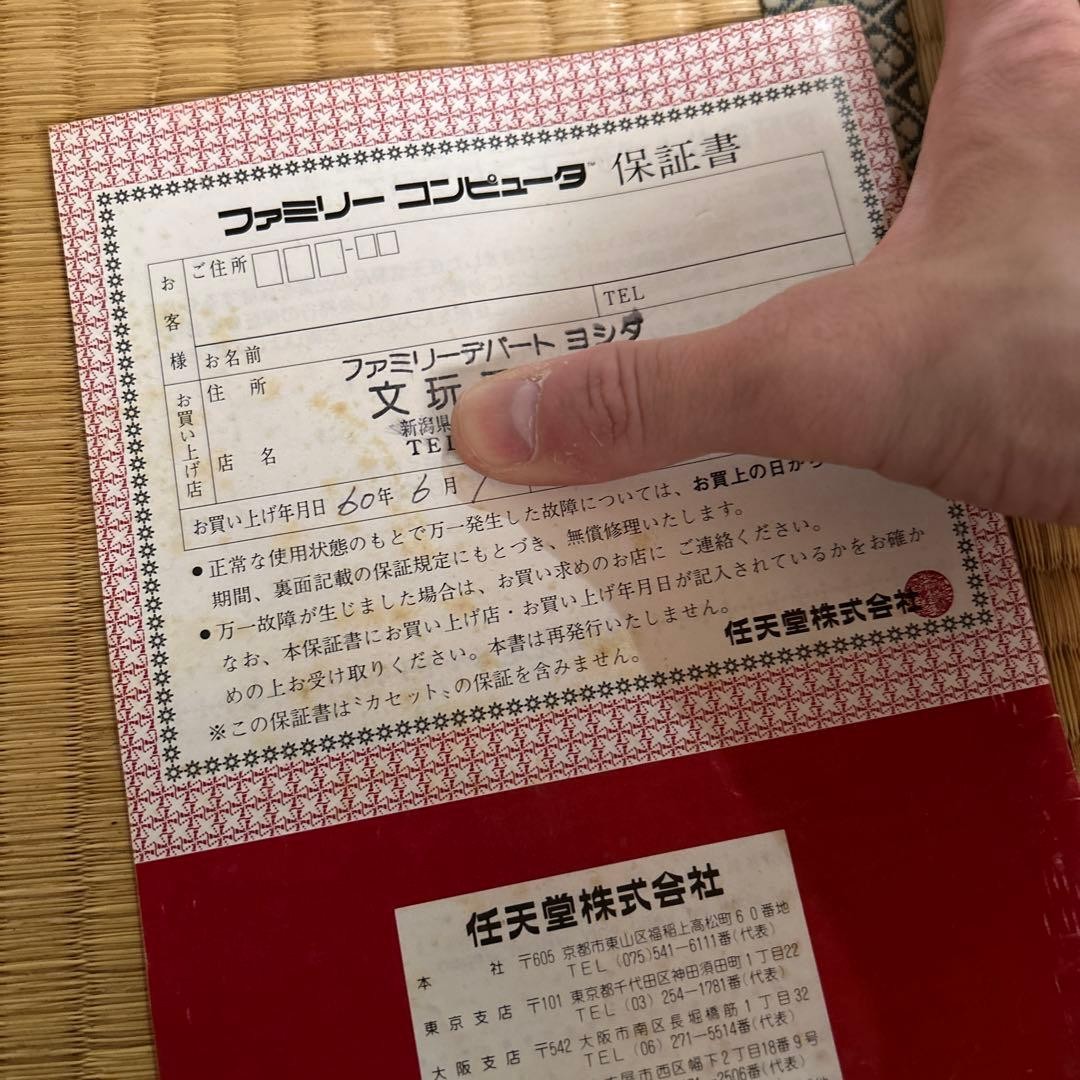 ファミリー コンピュータ™ 保証書
お客様
ご住所
TEL
お名前
お買い上げ店
住所
ファミリーデパート ヨシダ
文玩
新潟県
TEL
店名
お買い上げ年月日 60年 6月
●正常な使用状態のもとで万一発生した故障については、お買上の日から
期間、裏面記載の保証規定にもとづき、無償修理いたします。
●万一故障が生じました場合は、お買い求めのお店に ご連絡ください。
なお、本保証書にお買い上げ店・お買い上げ年月日が記入されているかをお確か
めの上お受け取りください。本書は再発行いたしません。
※この保証書は〝カセット〟の保証を含みません。
任天堂株式会社
任天堂株式会社
本社 〒605 京都市東山区福稲上高松町60番地
TEL (075)541−6111番(代表)
東京支店 〒101 東京都千代田区神田須田町1丁目22
TEL (03) 254−1781番(代表)
大阪支店 〒542 大阪市南区長堀橋筋1丁目32
TEL (06) 271−5514番(代表)
古屋市西区幅下2丁目18番9号
2506番(代表)